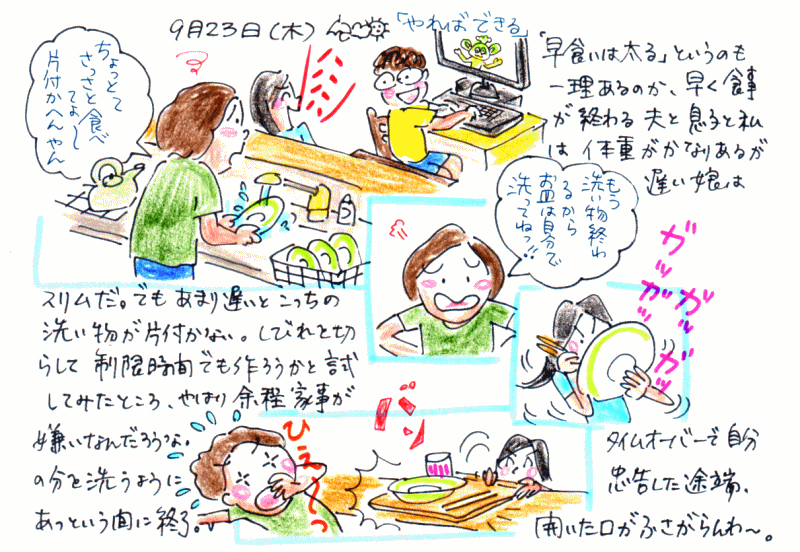 9月23日(木)
「やればできる」
ちょっとて
さっさと食べ
てよ〜し
片付かへんやん
「早食いは太る」というのも
一理あるのか、早く食事
が終わる夫と息子と私
は体重がかなりあるが
遅い娘は
もう
洗い物終わ
るから
お皿は自分で
洗ってねっ!!
ガッガッガッガッ
スリムだ。でもあまり遅いとこっちの
洗い物が片付かない。しびれを切
らして制限時間でも作ろうかと試
してみたところ、やはり余程家事が
嫌いなんだろうな。
タイムオーバーで自分
の分を洗うように
忠告した途端、
あっという間に終了。
開いた口がふさがらんわ〜。
ひえ〜っ
バン